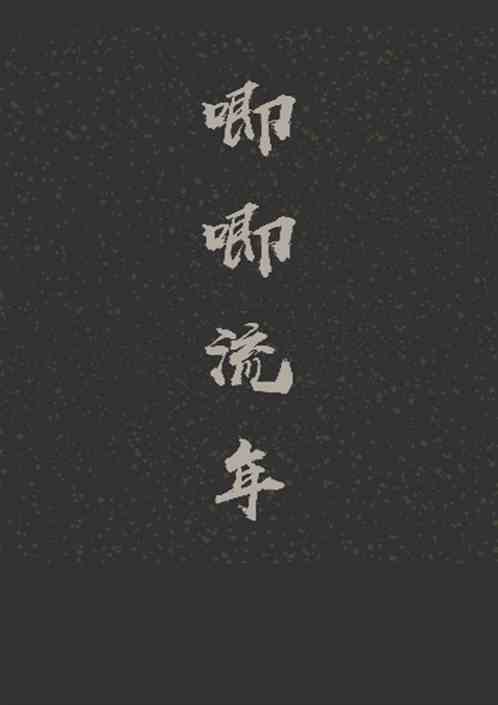 唧唧流年